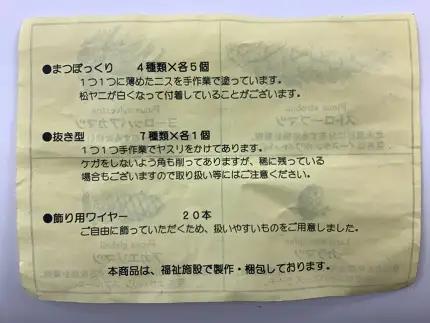 ●まつぼっくり　４種類×各５個
１つ１つに薄めたニスを手作業で塗っています。
松ヤニが白くなって付着していることがございます。
●抜き型　７種類×各１個
１つ１つ手作業でヤスリをかけてあります。
ケガをしないよう角も削ってありますが、稀に残っている
場合もございますので取り扱い等にはご注意ください。
●飾り用ワイヤー　２０本
ご自由に飾っていただくため、扱いやすいものをご用意しました。
本商品は、福祉施設で製作・梱包しております。